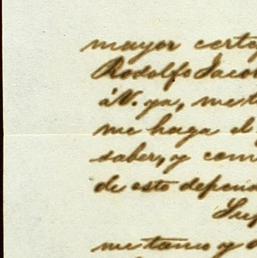 mayor certe
Rodolfo Jaco
á V. ya, me t
me haga el
saber, y com
de esto depend
Sup
me tomo y